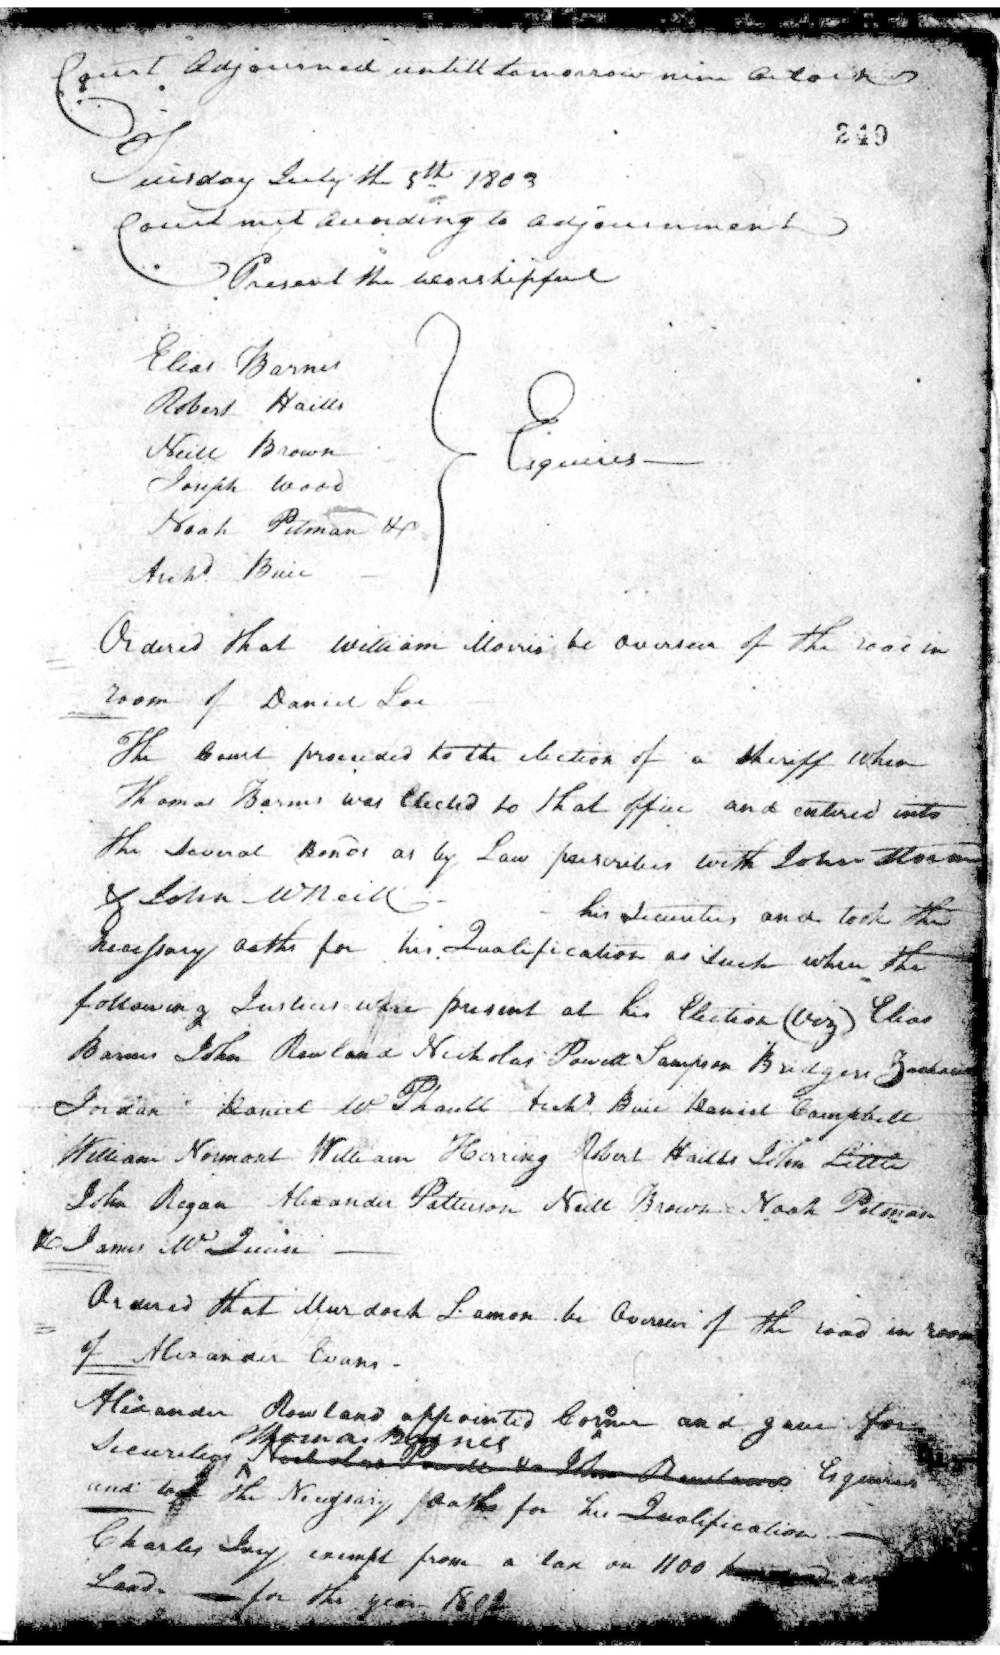 Court Adjourned untill tomorrow nine Oclock
249
Tuesday July the 5th 1803
Court met According to Adjournment
Present the worshipful
Elias Barnes
Robert Hails
Neill Brown
Joseph Wood
Noah Pitman &
Archd Buie
Esquires
Ordered that William Morris be overseer of the road in
room of Daniel
The Court proceeded to the election of a Sheriff when
Thomas Barnes was Elected to that office and entered into
the Several Bonds as by Law prescribes with John
& John McNeill his Securities and took the
necessary oaths for his Qualification as Such when the
following Justices were present at his Election (Viz) Elias
Barnes John Rowland Nicholas Powell Sampson Bridgers
Jordan Daniel McPhaull Archd Buie Daniel Campbell
William Normant William Herring Robert Hails John Little
John Regan Alexander Patterson Neill Brown Noah Pitman
& James McQueen
Ordered that Murdoch Lamon be Overseer of the road in room
of Alexander Evans
Alexander Rowland appointed Coroner and gave for
Thomas Barnes
Securities Nicholas Powell & John Rowland Esquires
and took the Necessary oaths for his Qualification
Charles Ivey exempt from a tax on 1100
Land for the year 1802